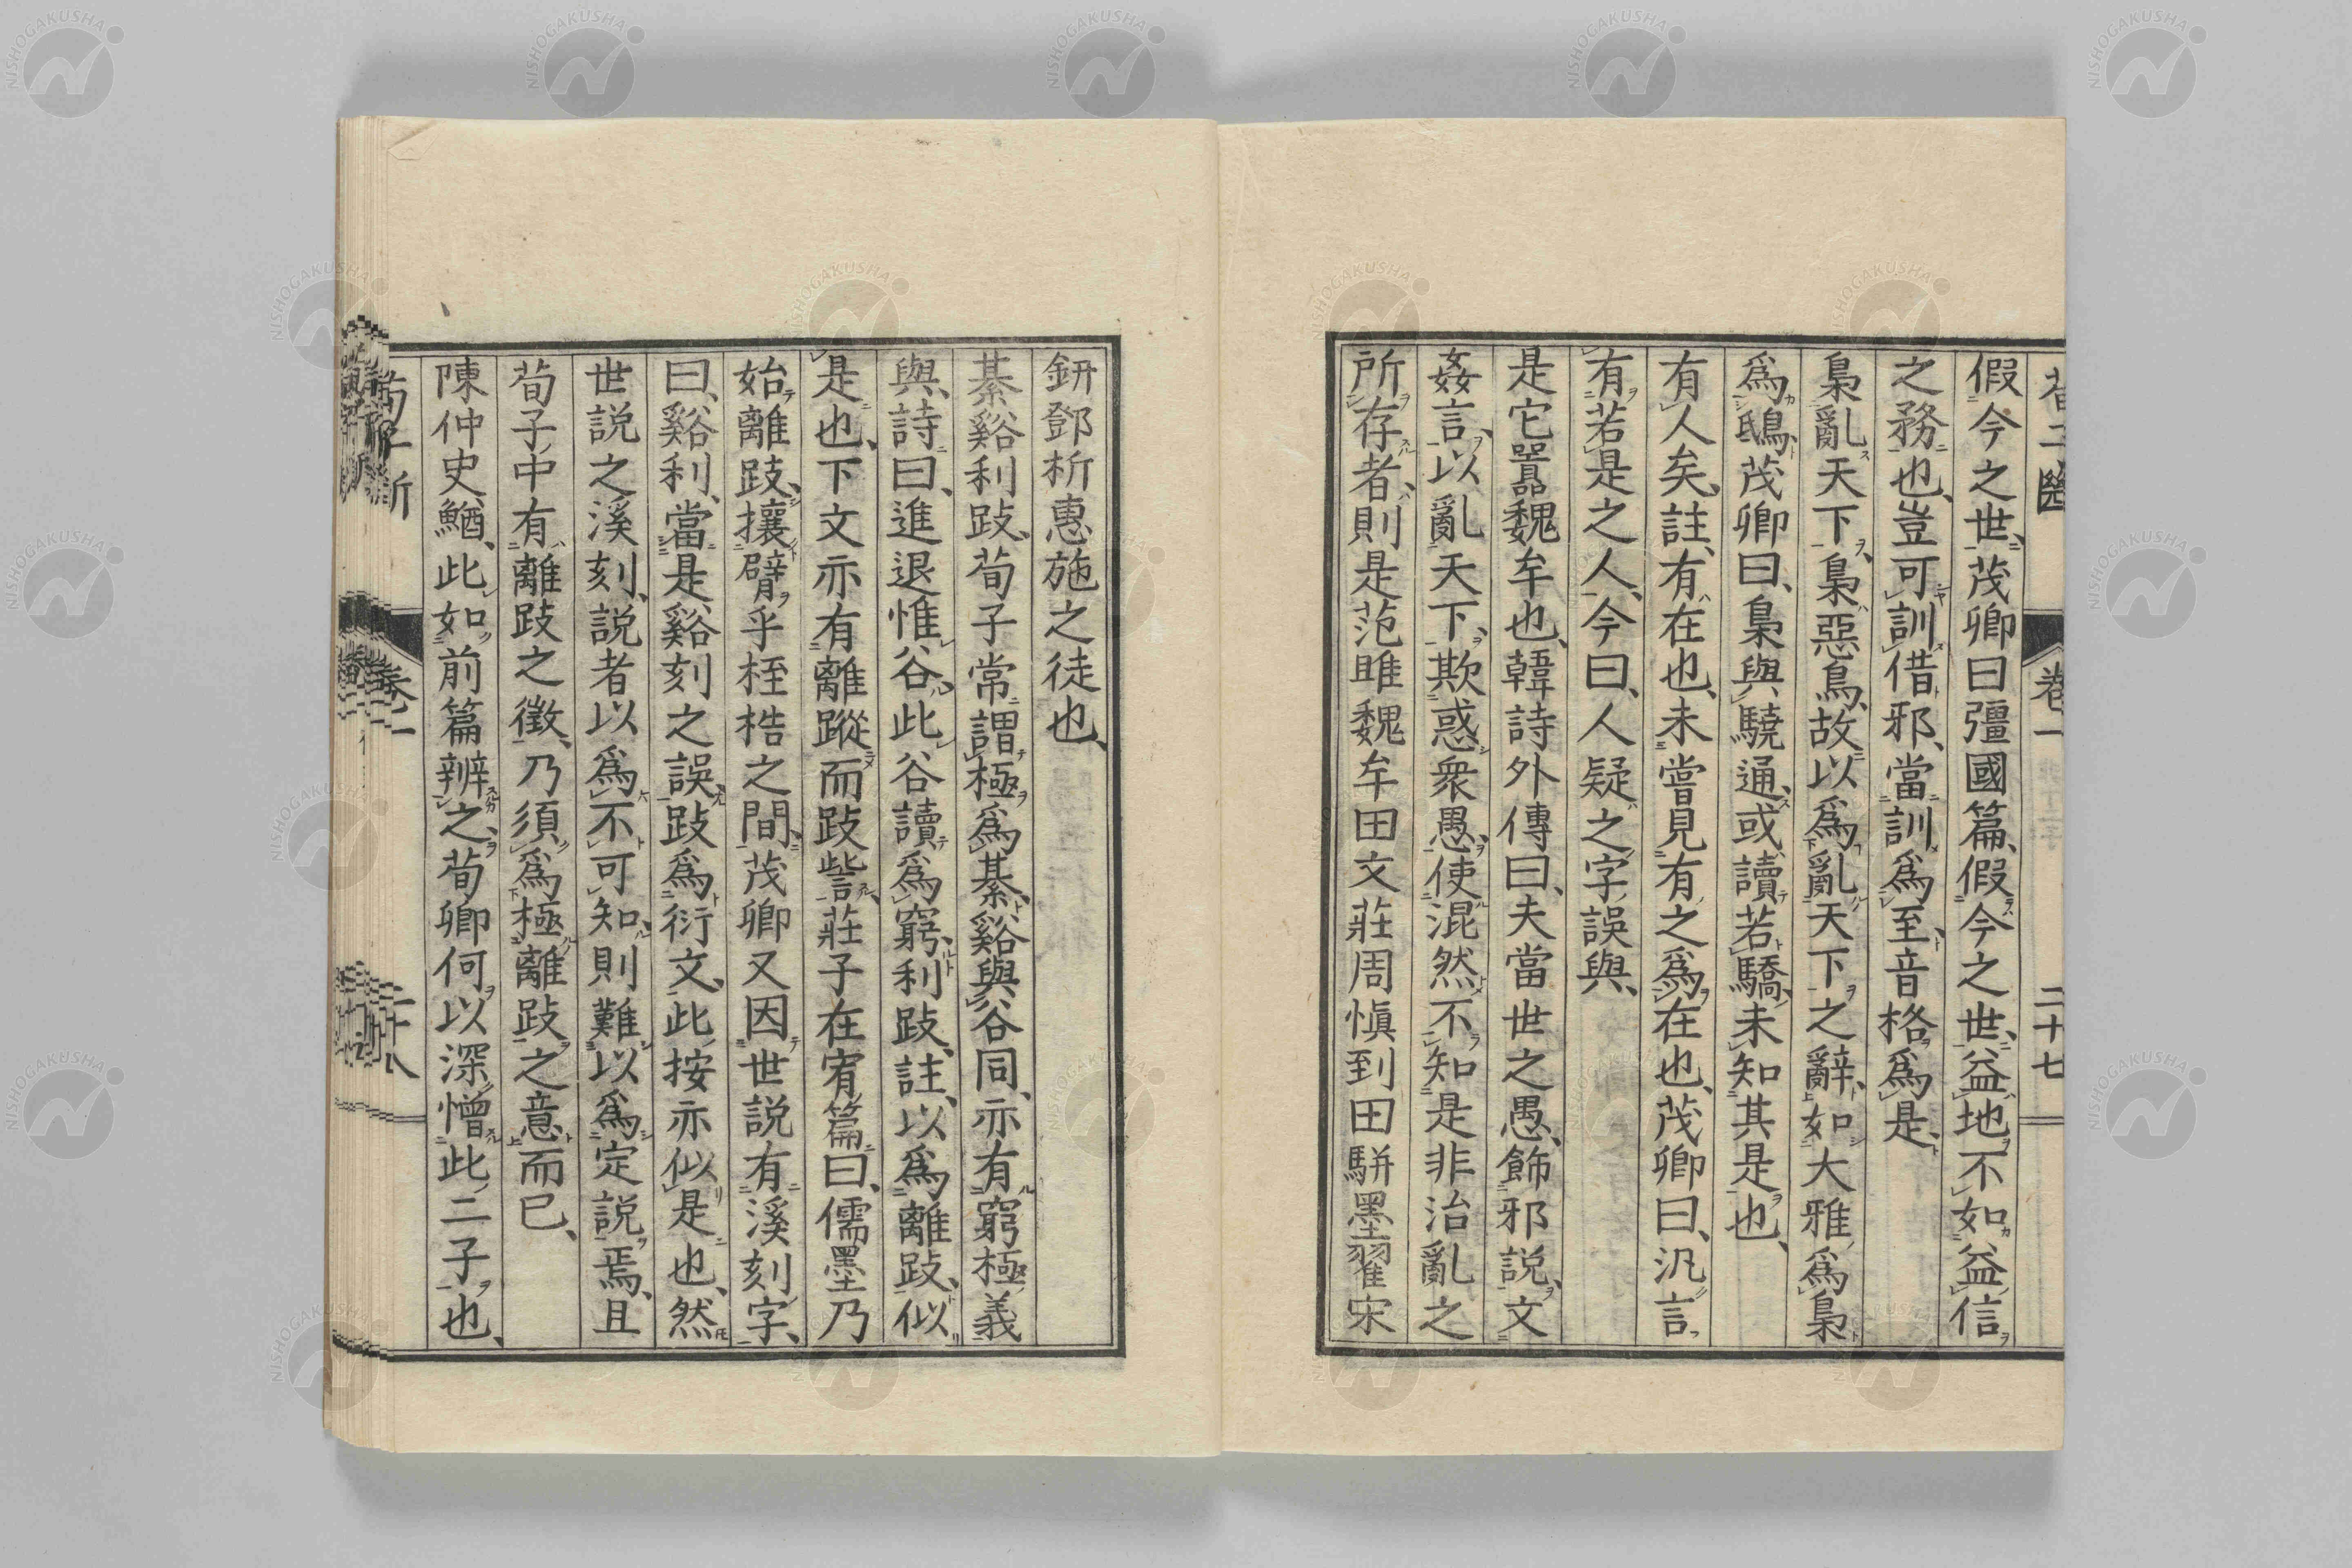 假今之世、茂卿曰彊國篇、假今之世、益地不如益信
之務也、豈可訓借邪、當訓爲至、音格爲是、
梟亂天下、梟惡鳥、故以爲亂天下之辭、如大雅爲梟
爲鴟、茂卿曰、梟與驍通、或讀若驕、未知其是也、
有人矣、註、有在也、未嘗見有之爲在也、茂卿曰、汎言
有若是之人、今曰、人疑之字誤與、
是它囂魏牟也、韓詩外傳曰、夫當世之愚、飾邪説、文
姦言、以亂天下、欺惑衆愚、使混然不知是非治亂之
所存者、則是范雎魏牟田文莊周愼到田駢墨翟宋
卷一
二十七
鈃鄧析惠施之徒也、
綦谿利跂、荀子常謂極爲綦、谿與谷同、亦有窮極義
與、詩曰、進退惟谷、此谷讀爲窮、利跂、註、以爲離跂、似
是也、下文亦有離蹤而跂訾、莊子在宥篇曰、儒墨乃
始離跂、攘臂乎桎梏之間、茂卿又因世説有溪刻字、
曰、谿利、當是谿刻之誤、跂爲衍文、此按亦似是也、然
世説之溪刻、説者以爲不可知、則難以爲定説焉、且
荀子中有離跂之徵、乃須爲極離跂之意而已、
陳仲史鰌、此如前篇辨之、荀卿何以深憎此二子也、
荀子斷
卷一
二十八